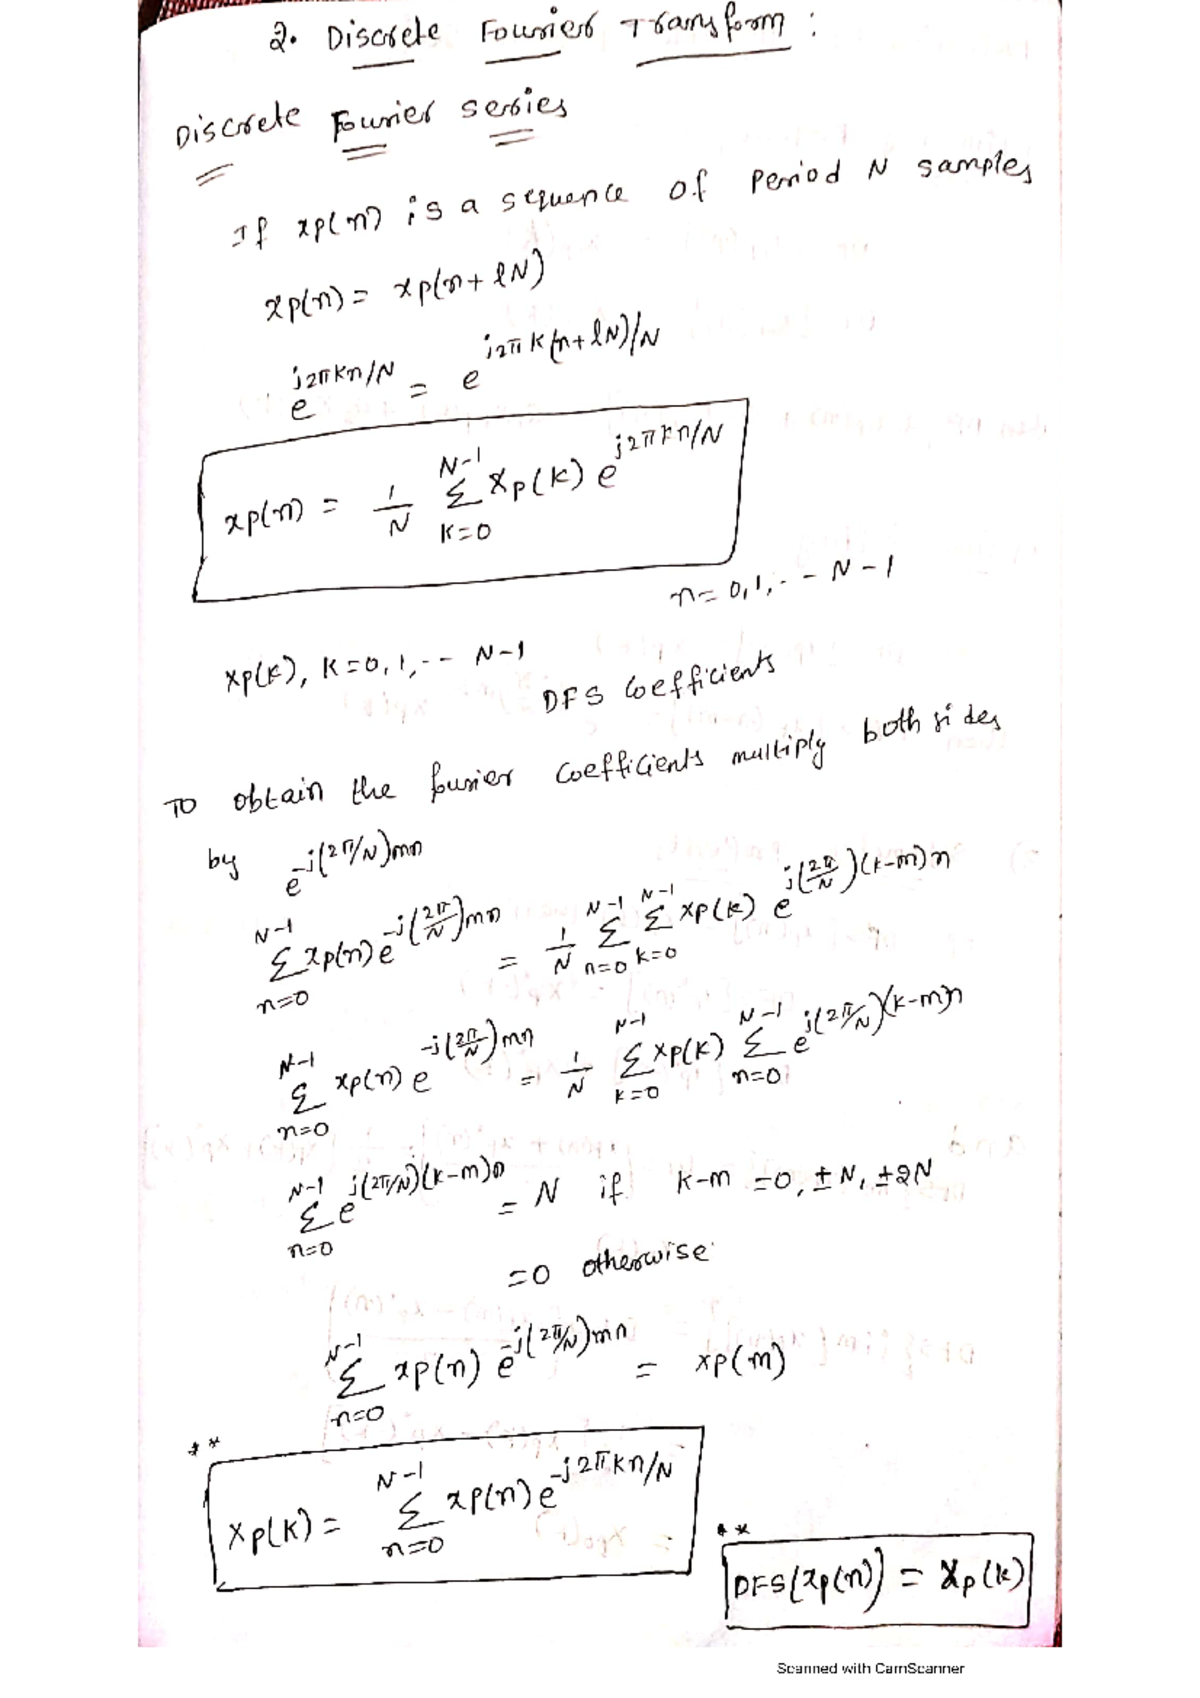 2. Discrete Fourier Transform :
Discrete Fourier series
If xp(n) is a sequence of Period N samples
xp(n) = xp(n + lN)
e^{j2πkn/N} = e^{j2πk(n+lN)/N}
xp(n) = 1/N Σ_{k=0}^{N-1} Xp(k) e^{j2πkn/N}
n = 0,1,-- N-1
Xp(k), k=0,1,-- N-1
DFS Coefficients
To obtain the fourier Coefficients multiply both sides
by e^{-j(2π/N)mn}
Σ_{n=0}^{N-1} xp(n) e^{-j(2π/N)mn} = 1/N Σ_{n=0}^{N-1} Σ_{k=0}^{N-1} Xp(k) e^{j(2π/N)(k-m)n}
Σ_{n=0}^{N-1} xp(n) e^{-j(2π/N)mn} = 1/N Σ_{k=0}^{N-1} Xp(k) Σ_{n=0}^{N-1} e^{j(2π/N)(k-m)n}
Σ_{n=0}^{N-1} e^{j(2π/N)(k-m)n} = N if k-m =0, ±N, ±2N
=0 otherwise
Σ_{n=0}^{N-1} xp(n) e^{-j(2π/N)mn} = Xp(m)
**
Xp(k) = Σ_{n=0}^{N-1} xp(n) e^{-j2πkn/N}
**
DFS(xp(n)) = Xp(k)
Scanned with CamScanner